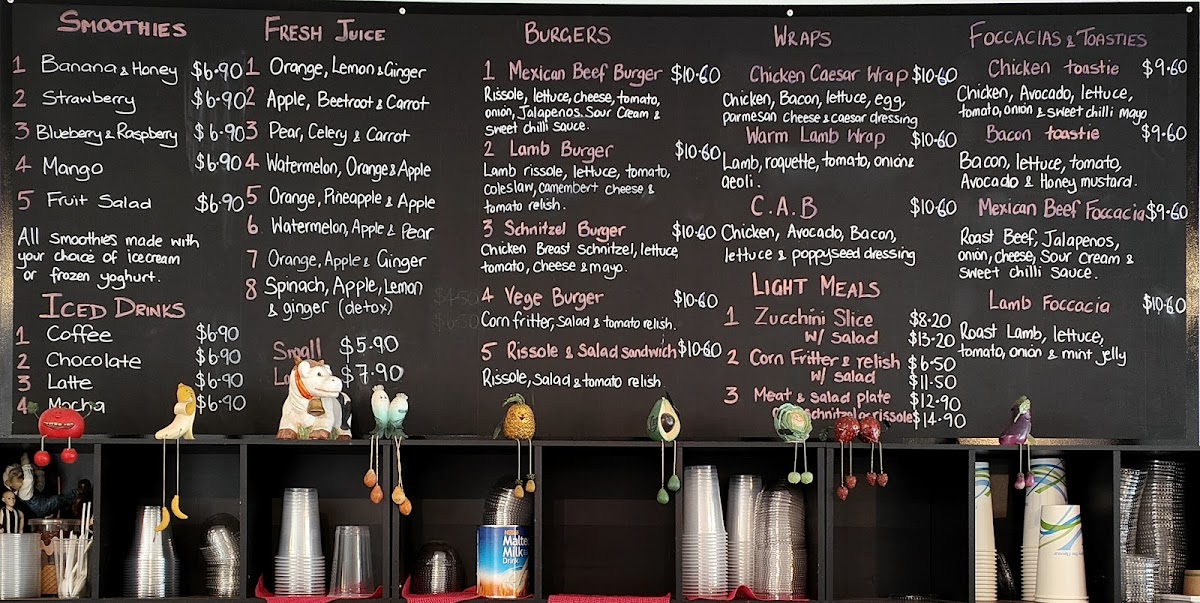 SMOOTHIES
1 Banana & Honey $6.90
2 Strawberry $6.90
3 Blueberry & Raspberry $6.90
4 Mango $6.90
5 Fruit Salad $6.90
All smoothies made with
your choice of icecream
or frozen yoghurt.
ICED DRINKS
1 Coffee $6.90
2 Chocolate $6.90
3 Latte $6.90
4 Mocha $6.90
FRESH JUICE
1 Orange, Lemon & Ginger
2 Apple, Beetroot & Carrot
3 Pear, Celery & Carrot
4 Watermelon, Orange & Apple
5 Orange, Pineapple & Apple
6 Watermelon, Apple & Pear
7 Orange, Apple & Ginger
8 Spinach, Apple, Lemon
& ginger (detox)
Small $5.90
$7.90
BURGERS
1 Mexican Beef Burger $10.60
Rissole, lettuce, cheese, tomato,
onion, Jalapenos. Sour Cream &
sweet chilli sauce.
2 Lamb Burger $10.60
Lamb rissole, lettuce, tomato,
coleslaw, camembert cheese &
tomato relish.
3 Schnitzel Burger $10.60
Chicken Breast Schnitzel, lettuce,
tomato, cheese & mayo.
4 Vege Burger $10.60
Corn fritter, salad & tomato relish.
5 Rissole & Salad sandwich $10.60
Rissole, salad & tomato relish
WRAPS
Chicken Caesar Wrap $10.60
Chicken, Bacon, lettuce, egg,
parmesan cheese & caesar dressing
Warm Lamb Wrap $10.60
Lamb, roquette, tomato, onion &
aeoli.
C.A.B $10.60
Chicken, Avocado, Bacon,
lettuce & poppyseed dressing
LIGHT MEALS
1 Zucchini Slice $8.20
w/ salad $13.20
2 Corn Fritter & relish $6.50
w/ salad $11.50
3 Meat & salad plate $12.90
schnitzel or rissole $14.90
FOCCACIAS & TOASTIES
Chicken toastie $9.60
Chicken, Avocado, lettuce,
tomato, onion & sweet chilli mayo
Bacon toastie $9.60
Bacon, lettuce, tomato,
Avocado & Honey mustard.
Mexican Beef Foccacia $9.60
Roast Beef, Jalapenos,
onion, cheese, Sour Cream &
sweet chilli sauce.
Lamb Foccacia $10.60
Roast Lamb, lettuce,
tomato, onion & mint jelly
Malted
Milk
Drink